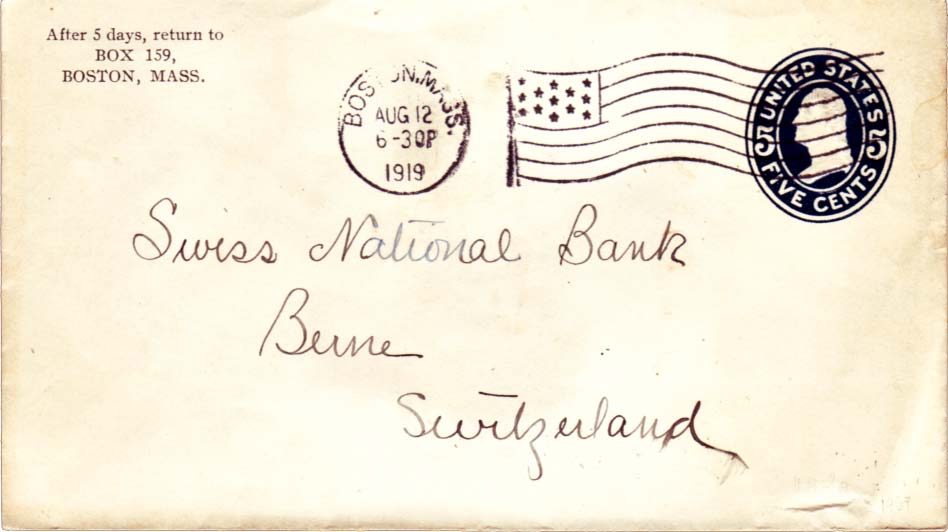 After 5 days, return to
BOX 159,
BOSTON, MASS.
BOSTON, MASS.
AUG 12
6-30P
1919
UNITED STATES
5 5
FIVE CENTS
Swiss National Bank
Berne
Switzerland